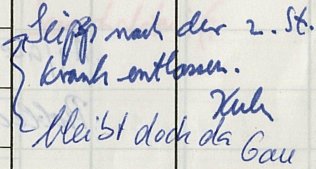 Seipp nach der 2. St.
krank entlassen.
Kuh
bleibt doch da Gau